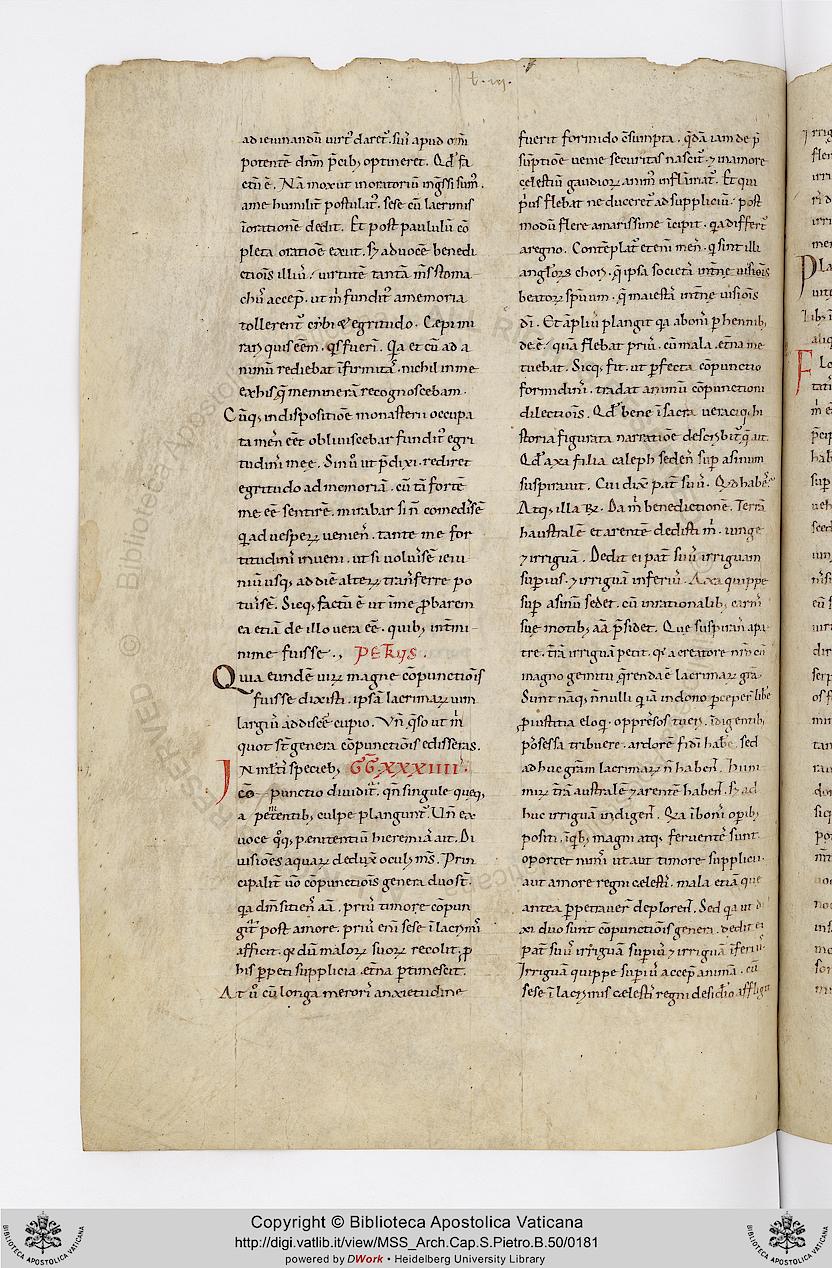 ad ieiunandū uirt᷒ daret᷒. suis apud om̄
potentē dn̄m p̄cib; optineret. Qd᷒ fa
ctū ē. Nā mox ut in oratoriū ingressi sum᷒.
ame humilit̄ postulat᷒. sese cū lacrimis
ī oratione dedit. Et post paululū cō
pleta oratiōe exiit. s; ad uocē benedi
ctiōis illius. uirtutē tantā m̄s stoma
chus accep̄. ut m̄ fundit᷒ amemoria
tolleretᷣ cibi ⁊ egritudo. Cepi mi
rari quis eēm. qs̄ fuerī. Qa et cū ad a
nimū rediebat īfirmitas. nichil in me
ex his q̄ memineram recognoscebam.
Cūq; in dispositiōe monasterii occupa
ta mens eēt obliuiscebar fundit᷒ egri
tudinis meę. Si uº ut p̄dixi. rediret
egritudo ad memoriā. cū tā fortē
me eē sentirē. mirabar si n̄ comedissē
Qui ad uesperꝝ ueniens. tantę me for
titudinis inueni. ut si uoluissē ieiu
niū usq; ad diē alterꝝ transferre po
tuissē. Sicq; factū ē ut ī me ꝓbarem
ea etiā de illo uera eē. quib; int̄mi
nime fuisse. PETRUS.
Quia eundē uirꝝ magnę cōpunctiōis
fuisse dixisti. ipsā lacrimaꝝ uim
largius addiscere cupio. Vn̄ q̄so ut m̄
quot st̄ genera cōpunctiōis edisseras.
IN mlt̄is specieb; GG XXXIIII.
cō punctio diuidit᷒. qn̄ singulę quęq;
a penitentib; culpę planguntᷣ. Vn̄ ex
uoce qº q; penitentiū hieremias ait. Di
uisiōes aquaꝝ deduxeͬ oculus m̄s. Prin
cipalit̄ uō cōpunctiōis genera duo st̄.
qa dm̄ sitiens aīa. prius timore cōpun
gitᷣ post amore. prius enī sese ī lacrimis
afficit. qa dū maloꝝ suoꝝ recolit. ꝓ
his ꝑpeti supplicia. ętna ꝑtimescit.
At uº cū longa meroris anxietudine
fuerit formido cōsumpta. qdā iam de p̄
sūptione uenię securitas nascit᷒. ⁊ in amore
cęlestiū gaudioꝝ animus inflāmat᷒. Et qui
prius flebat ne duceretᷣ ad suppliciū. post
modū flere amarissime īcipit. qa differt᷒
a regno. Contēplat᷒ eteni mens. q sint illi
anglors chori. q̄ ipsa societas int̄nę uisiōis
beatoꝝ sp̄uum. q̄ maiestas int̄nę uisiōis
dī. Et āplius plangit qa abonis ꝑhennib;
deē. quā flebat prius. cū mala ętna me
tuebat. Sicq; fit. ut ꝑfecta cōpunctio
formidinis. tradat animū cōpunctioni
dilectiōis. Qd᷒ bene ī sacra ueraciq; hi
storia figurata narratiōe describit᷒ q̄ ait.
Qd᷒ axa filia caleph sedens suꝑ asinum
suspirauit. Cui dix̄ pat̄ suus. Qd habes?
Atq; illa R̄. Da m̄ benedictionē. Terrā
haustralē et arentē dedisti m̄. iunge
⁊ irriguā. Dedit ei pat̄ suus irriguam
superius. ⁊ irriguā inferius. Axa quippe
suꝑ asinū sedet. cū inrationalib; carnis
suę motib; aīa p̄sidet. Quę suspirans a pa
tre. t̄rā irriguā petit. qa a creatore nr̄o cū
magno gemitu q̄renda ē lacrimaꝝ gr̄a.
Sunt nāq; n̄nulli q iā in dono ꝑceperͬ libe
ꝓ iustitia eloqi. oppressos tueri. īdigentib;
possessa tribuere. ardorē fidei haberͤ. sed
adhuc gr̄am lacrimaꝝ n̄ habent. Hi ni
miꝝ t̄rā australē ⁊ arentē habent. s; ad
huc irriguā indigent. Qa ī bonis opib;
positi. īqb; magni atq; feruentes sunt.
oportet nimis ut aut timore supplicii.
aut amore regni cęlestis. mala etiā que
antea ꝑpetrauerͬ deplorent. Sed qa ut di
xi duo sunt cōpunctiōis genera. dedit ei
pat̄ suus irriguā suꝑius ⁊ irriguā īferius.
Irriguā quippe suꝑius accep̄ anima. cū
sese ī lacrimis cęlestis regni desiderio affligit
Copyright © Biblioteca Apostolica Vaticana
http://digi.vatlib.it/view/MSS_Arch.Cap.S.Pietro.B.50/0181
powered by DWork • Heidelberg University Library